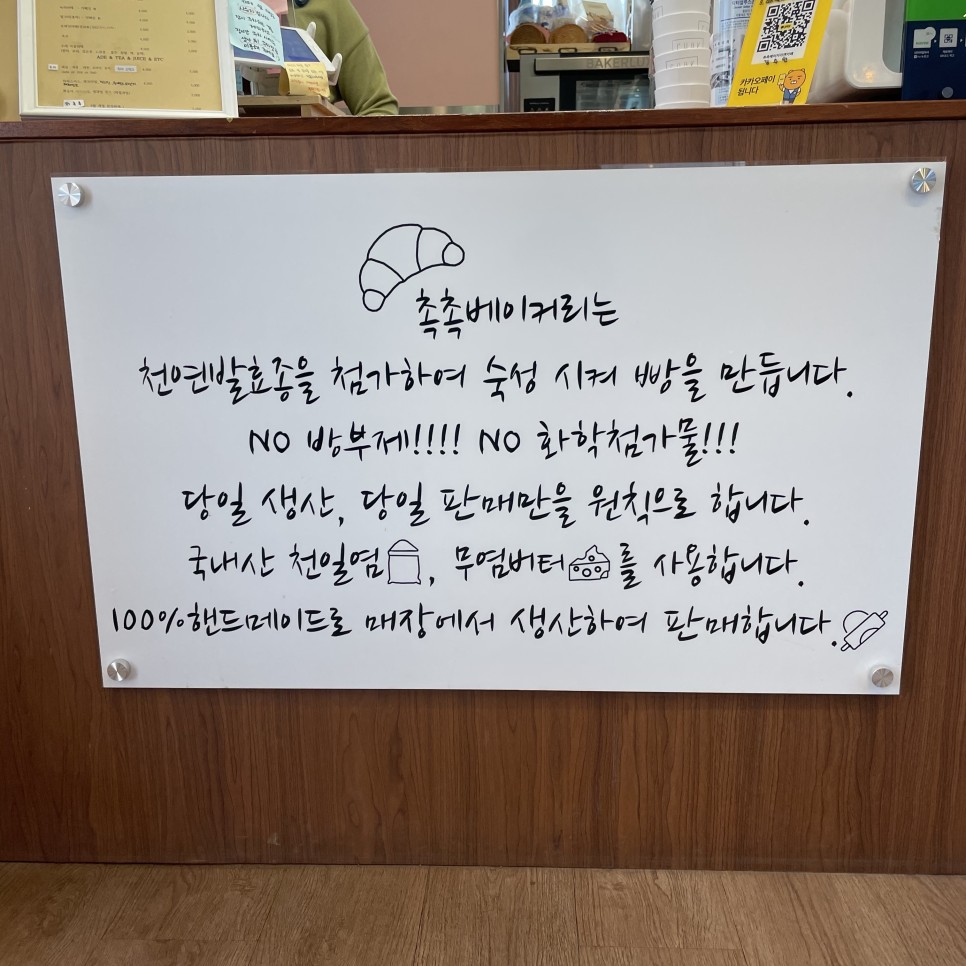 ADE & TEA & JUICE & ETC
BAKERLUX
카카오페이
됩니다
촉촉베이커리는
천연발효종을 첨가하여 숙성 시켜 빵을 만듭니다.
NO 방부제!!!! NO 화학첨가물!!!
당일 생산, 당일 판매만을 원칙으로 합니다.
국내산 천일염, 무염버터를 사용합니다.
100%핸드메이드로 매장에서 생산하여 판매합니다.